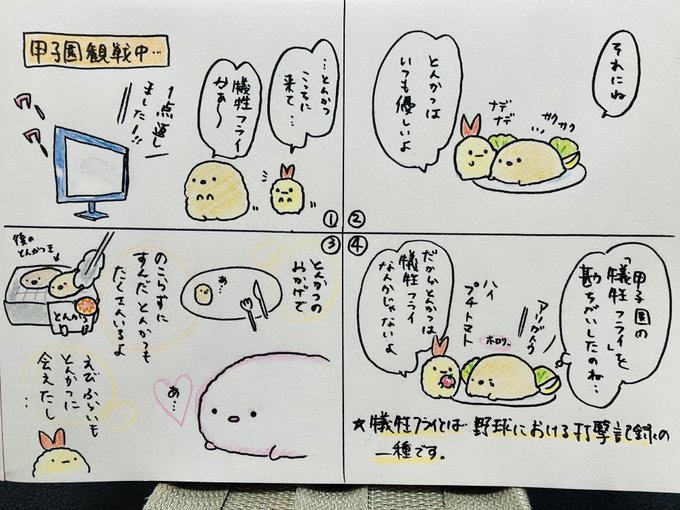 甲子園観戦中…
1点返し
ました!!
ワー
ワー
犠牲フライ
かぁ〜
…とんかつ
こっちに
来て…
①
②
それにね
とんかつは
いつも優しいよ
ナデ
ナデ
カクカク
③
とんかつの
おかげで
あ…
のこらずに
すんだとんかつも
たくさんいるよ
後の
とんかつ王
とんかつ
えびふらいも
とんかつに
会えたし
…
あ…
④
甲子園の
「犠牲フライ」を
勘ちがいしたのね…
アリガトウ
ホロリ…
ハイ
プチトマト
だからとんかつは
犠牲フライ
なんかじゃないよ
☆犠牲フライとは 野球における打撃記録の
一種です。